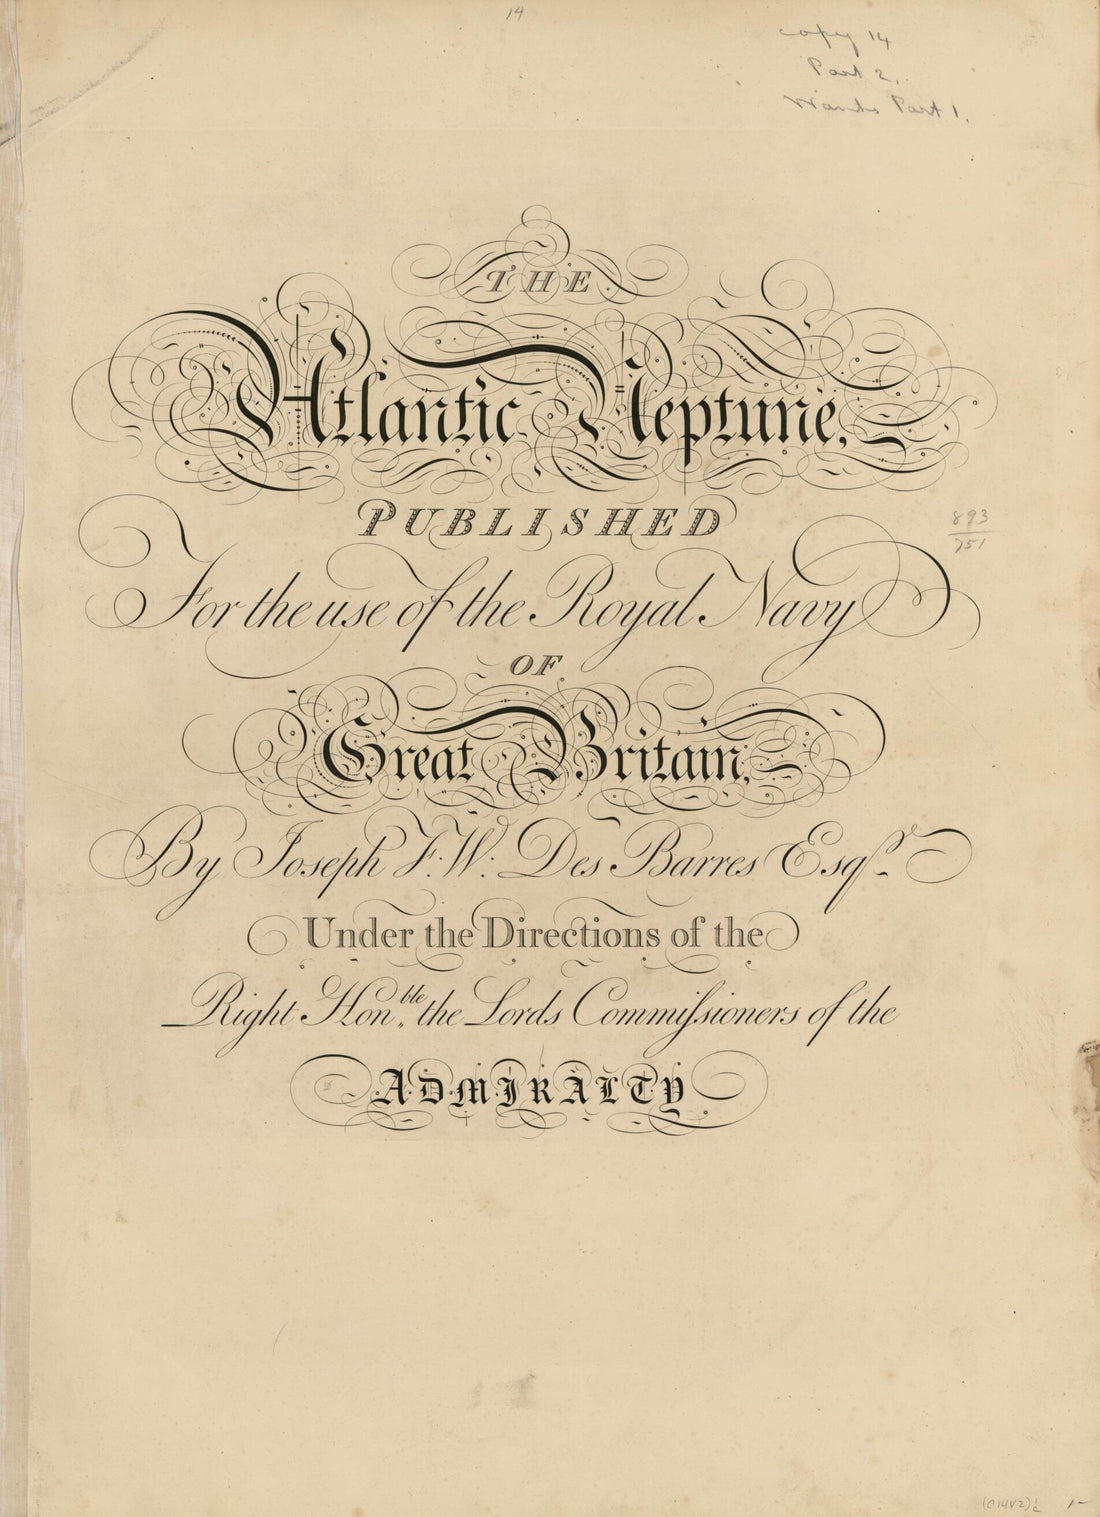 14
copy 14
Part 2.
Wants Part 1.
THE
Atlantic Neptune,
PUBLISHED
For the use of the Royal Navy
OF
Great Britain,
893
751
By Joseph F. W. Des Barres Esqr.
Under the Directions of the
Right Honble. the Lords Commiſsioners of the
ADMIRALTY
1-